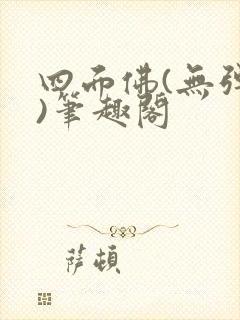 四面佛(無彈
)筆趣閣
薩頓